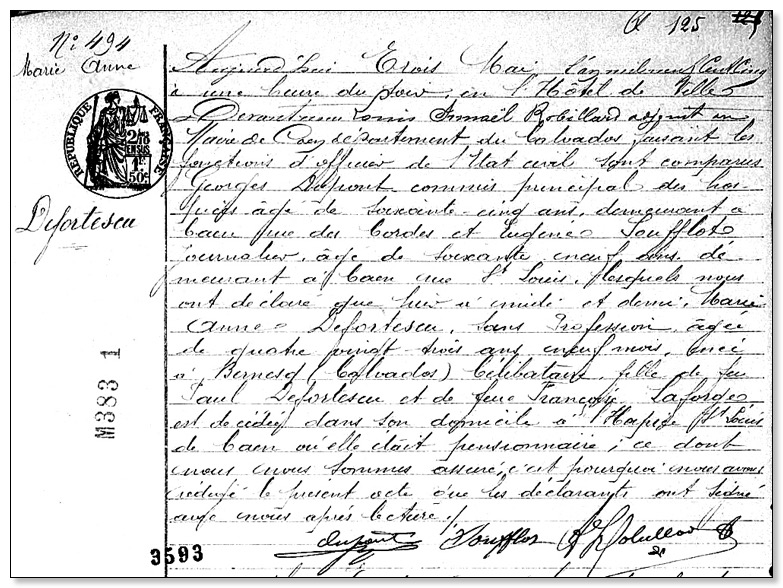 125
N° 494
Marie Anne
Defortescu
RÉPUBLIQUE FRANÇAISE
2/10 EN SUS
1F 50c
M383 1
3593
Aujourd'hui Trois Mai l'an mil neuf Cent Cinq
à une heure du soir, en l'Hôtel de Ville
Devant nous Louis Ismaël Robillard adjoint au
Maire de Caen département du Calvados faisant les
fonctions d'officier de l'Etat civil sont comparus
Georges Dupont commis principal des hos-
pices âgé de soixante-cinq ans, demeurant à
Caen rue des Cordes et Eugène Soufflot
journalier, âgé de soixante neuf ans, de
meurant à Caen rue St Louis, lesquels nous
ont déclaré que hier à midi et demi, Marie
Anne Defortescu, sans Profession, âgée
de quatre vingt trois ans, neuf mois, née
à Bernesq (Calvados) Célibataire, fille de feu
Paul Defortescu et de feue Françoise Laforge
est décédée dans son domicile à l'Hospice St Louis
de Caen où elle était pensionnaire; ce dont
nous nous sommes assuré; c'est pourquoi nous avons
rédigé le présent acte que les déclarants ont signé
avec nous après lecture ./.
Dupont Soufflot Robillard